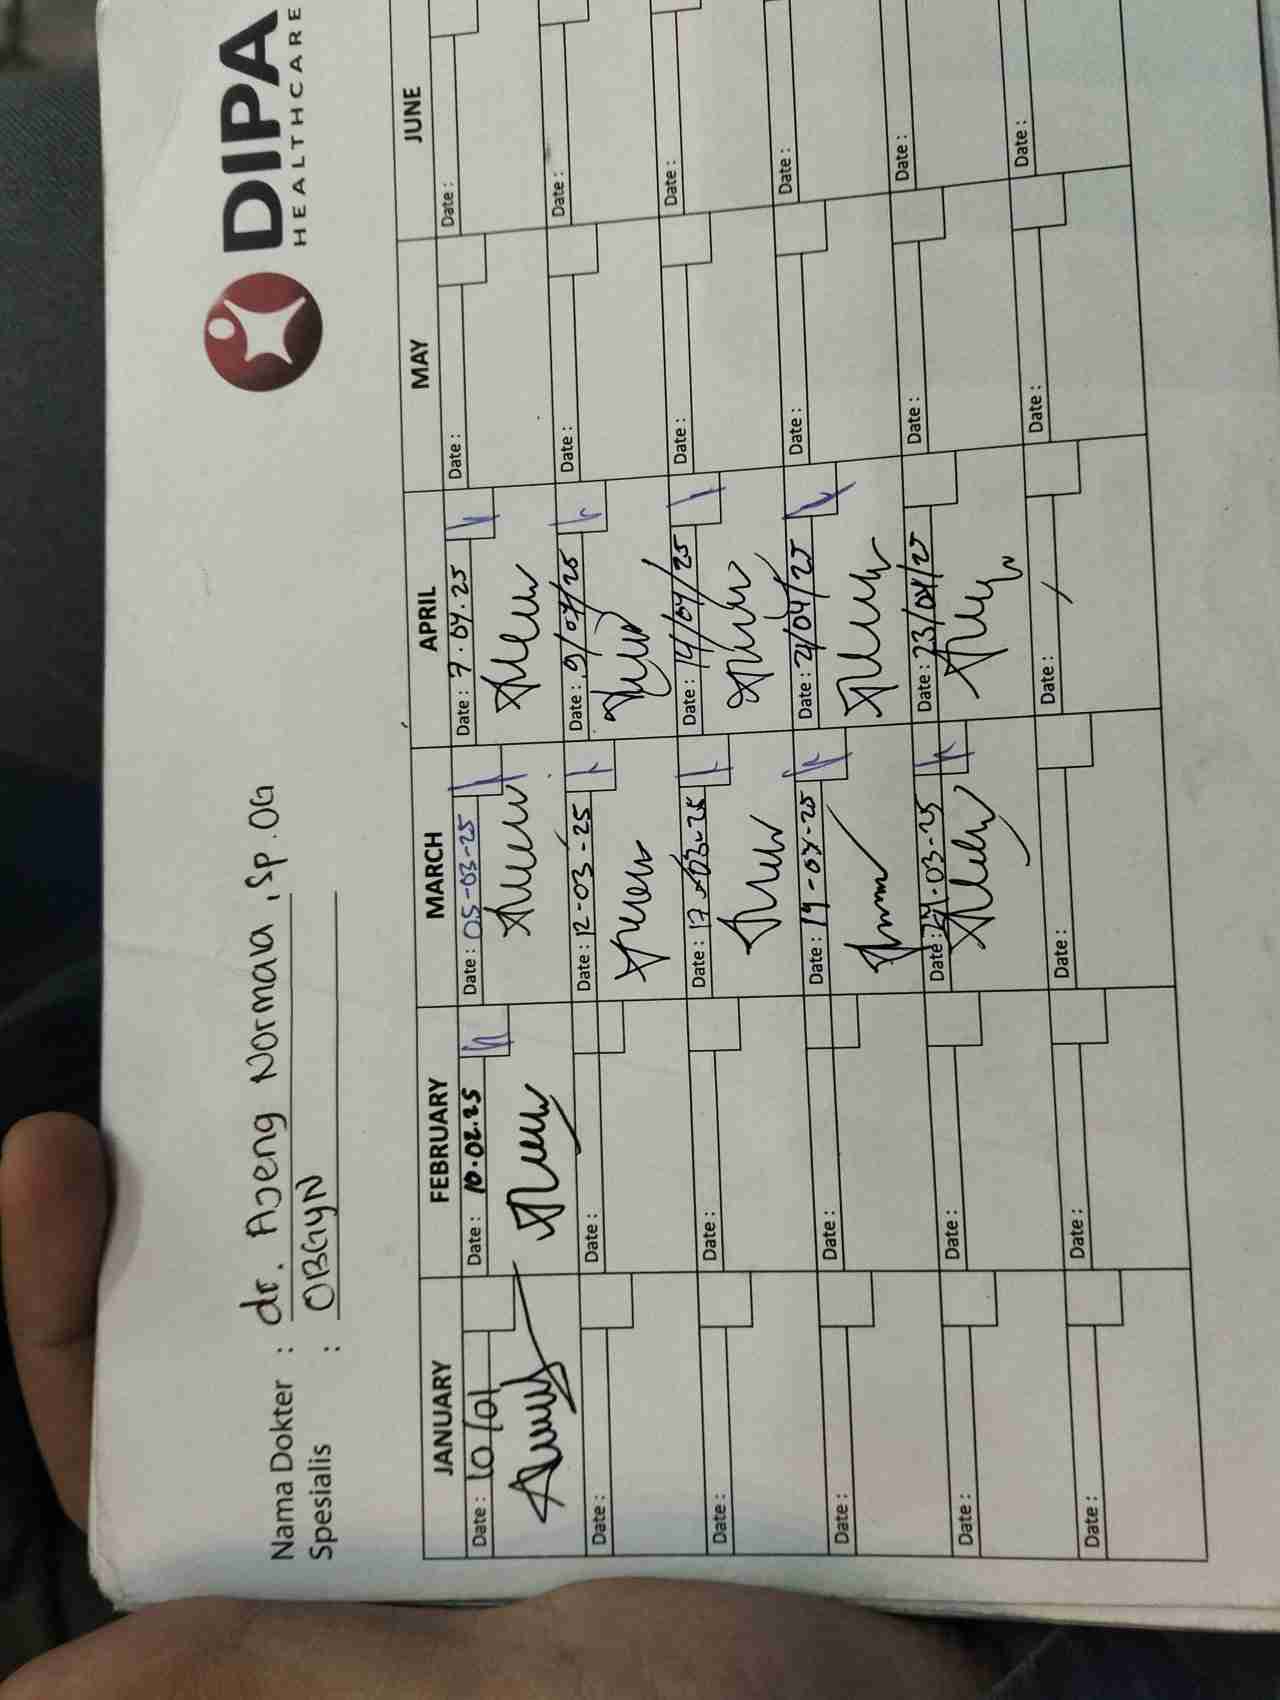 DIPA
HEALTHCARE
Nama Dokter : dr. Ajeng Normala, Sp.OG
Spesialis : OBGYN
JANUARY FEBRUARY MARCH APRIL MAY JUNE
Date : 10/01 Date : 10.02.25 Date : 05-03-25 Date : 7.04.25 Date : Date :
Date : Date : Date : 12-03-25 Date : 9/04/25 Date : Date :
Date : Date : Date : 17-03-25 Date : 14/04/25 Date : Date :
Date : Date : Date : 19-03-25 Date : 21/04/25 Date : Date :
Date : Date : Date : 24-03-25 Date : 23/04/25 Date : Date :
Date : Date : Date : Date : Date : Date :